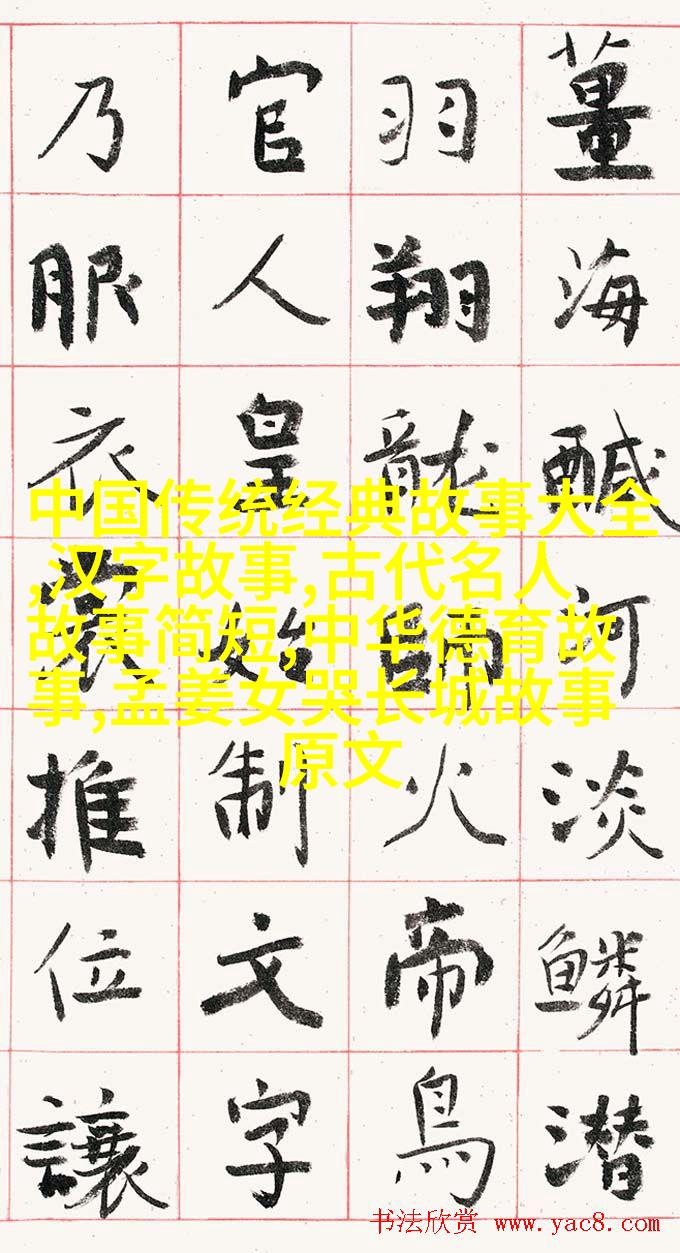 薑海醎河淡鱗潛
羽翔龍師火帝鳥
官人皇始制文字
乃服衣裳推位讓
中国传统经典故事大全
,汉字故事,古代名人
故事简短,中华德育故
事,孟姜女哭长城故事
原文
书法欣赏 www.yac8.com